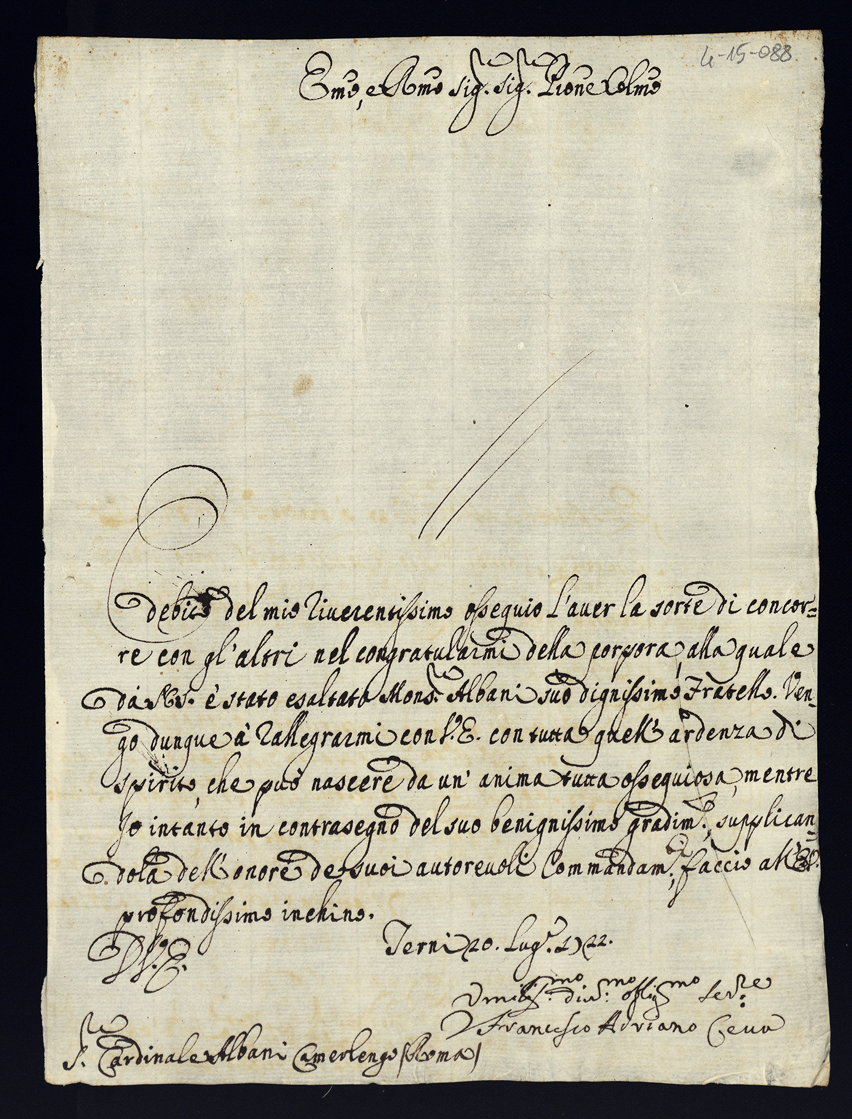 4-15-088
Emo, e Rmo Sig.re Sig.re Prone Colmo
È debito del mio riverentissimo ossequio l'aver la sorte di concor=
re con gl'altri nel congratularmi della porpora, alla quale
da N.S. è stato esaltato Mons.re Albani suo dignissimo Fratello. Ven=
go dunque à rallegrarmi con V.E. con tutta quell'ardenza di
spirito, che può nascere da un'anima tutta ossequiosa, mentre
Io intanto in contrasegno del suo benignissimo gradim.to, supplican=
dola dell'onore de suoi autorevoli Commandam.ti, faccio all'E.V.
profondissimo inchino.
D V.E.
Terni 20. Lug.o 1722.
Umiliss.mo div.mo obligmo Ser.re
Francesco Adriano Ceva
S.re Cardinale Albani Camerlengo (Roma)